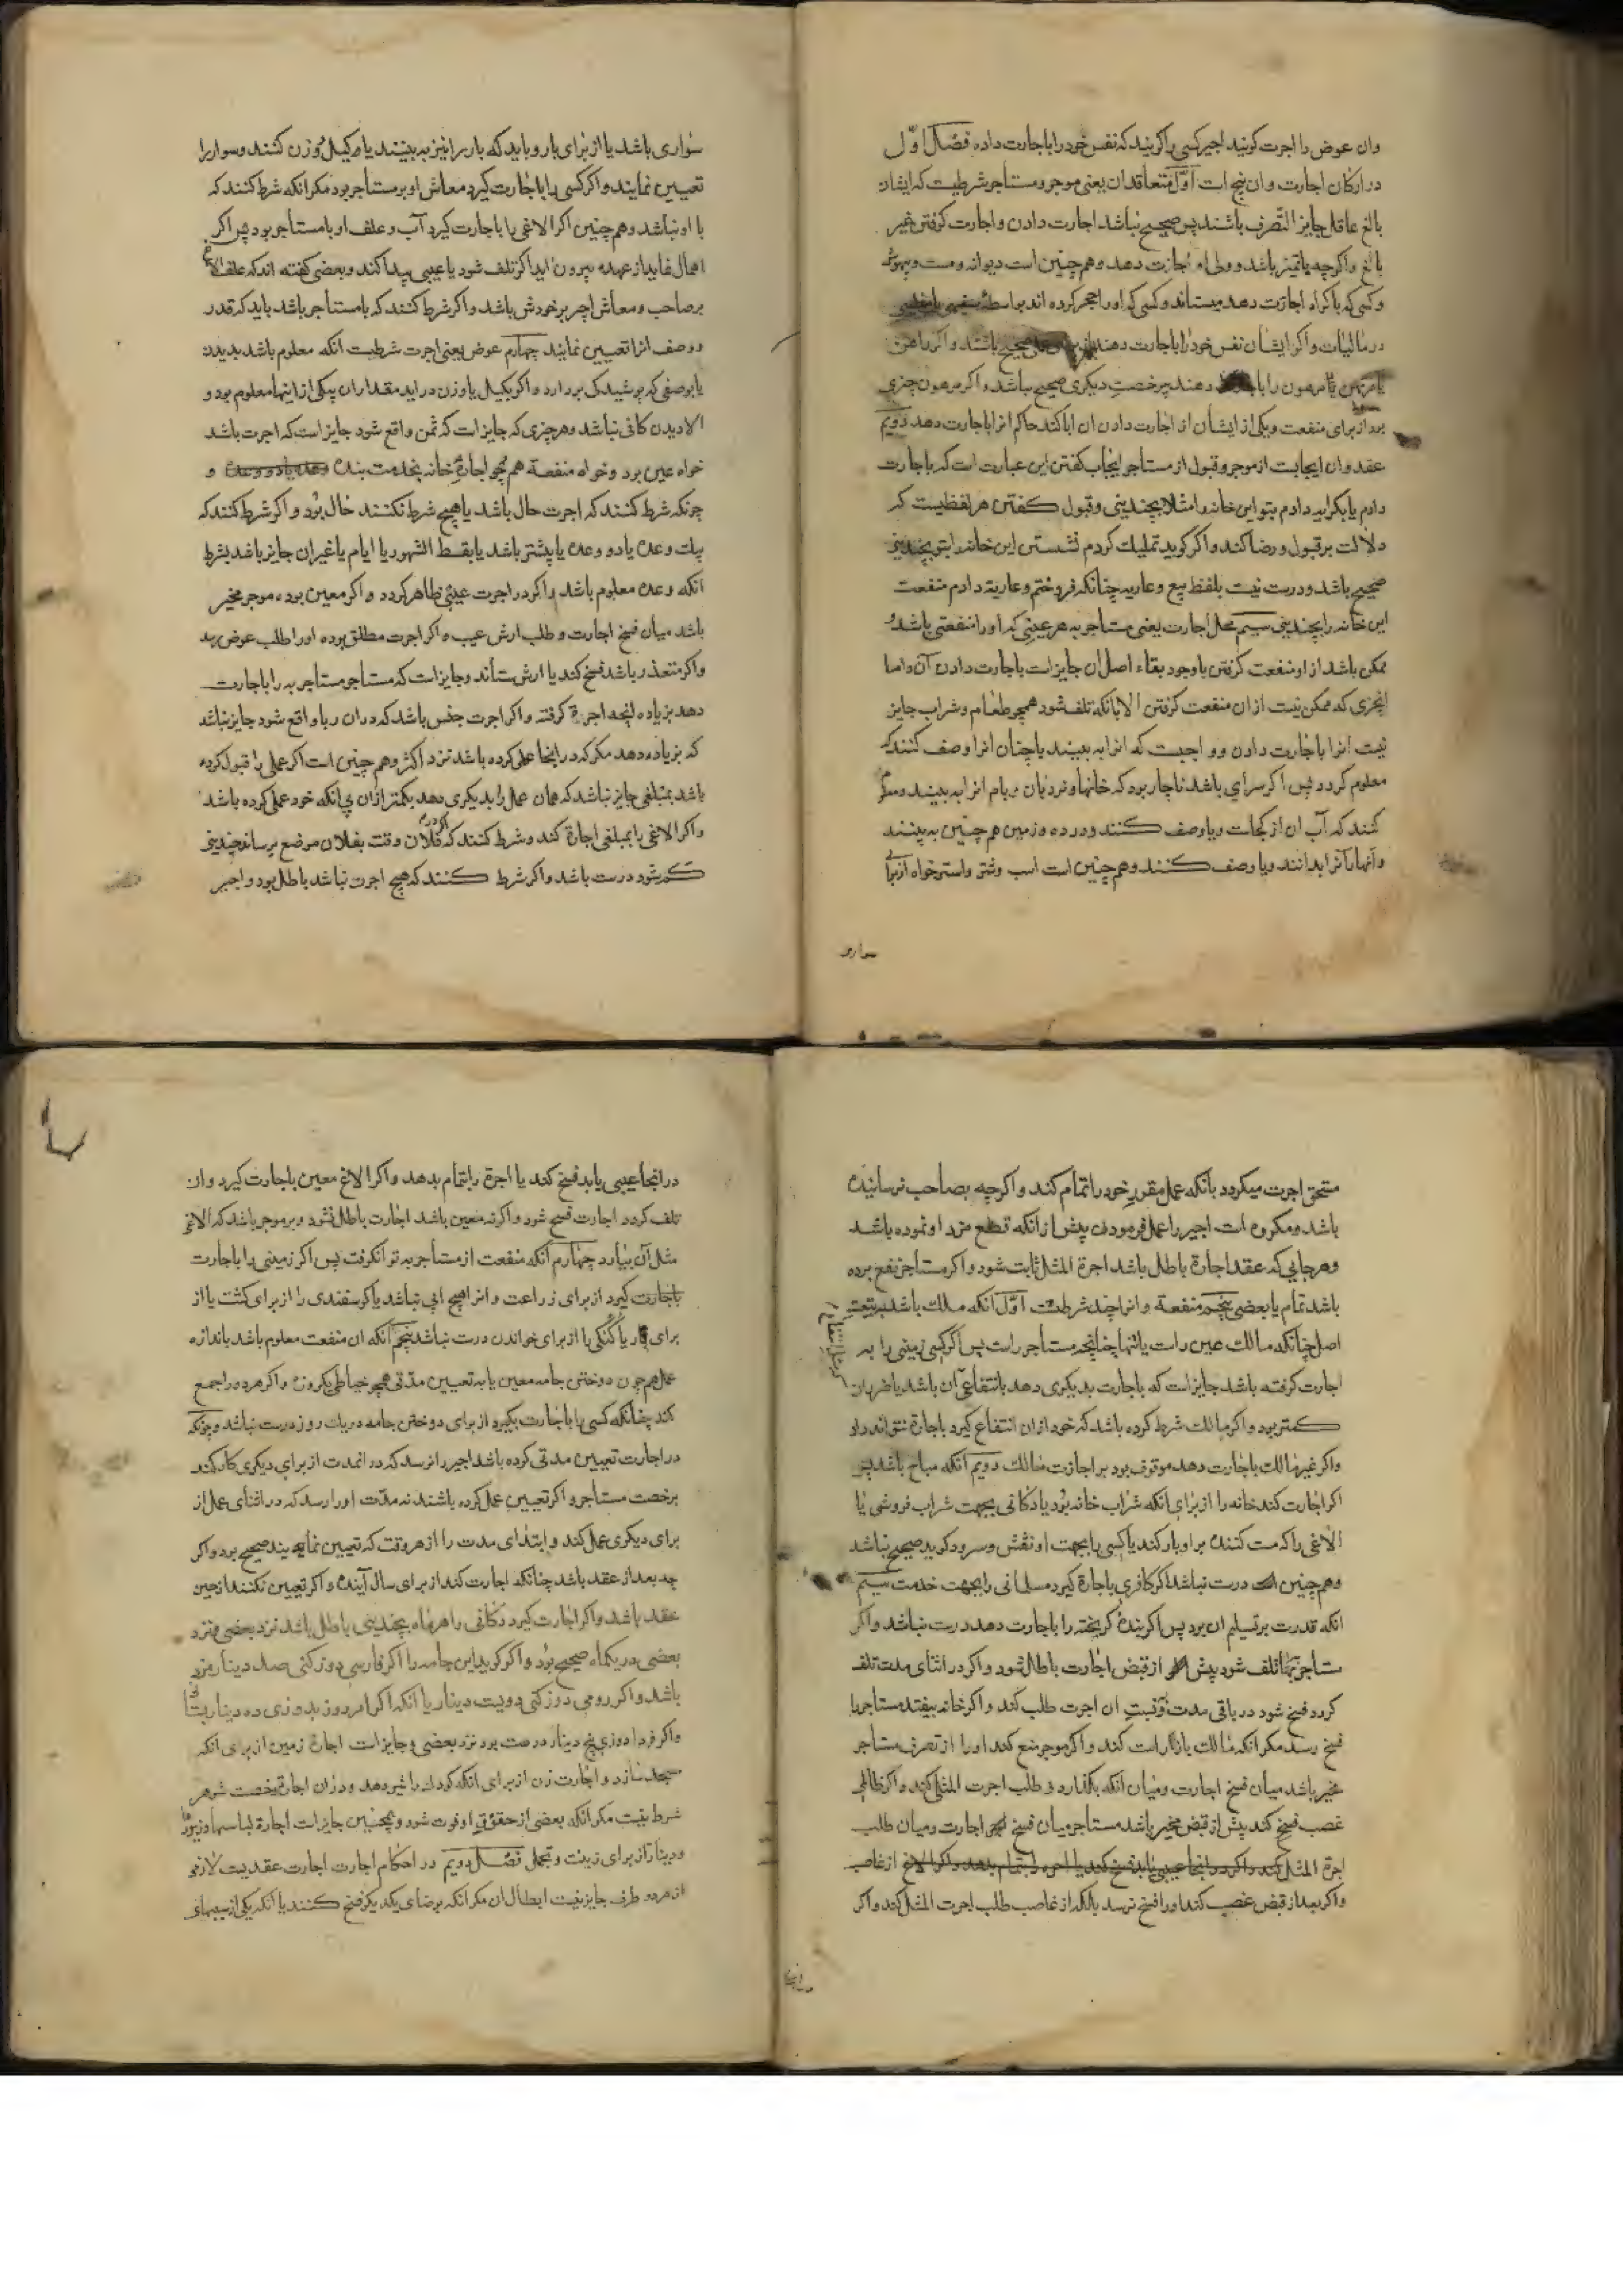 وان عوض را اجرت کویند اجیر کسی را کویند که نفس خود را باجارت داده فصل اول
در ارکان اجارت و ان پنج است اول متعاقدان یعنی موجر و مستاجر شرطیت که ایشان
بالغ عاقل جایز التصرف باشند پس صحیح نباشد اجارت دادن و اجارت کرفتن غیر
بالغ واکرچه باتمیز باشد و ولی او اجازت دهد و هم چنین است دیوانه و مست و بیهوش
و کسی که باکراه اجازت دهد میستاند و کسی که او را حجر کرده اند بواسطهٔ سفیهی یا مفلسی
در مالیات و اکر ایشان نفس خود را باجارت دهند صحیح باشد و اکر راهن
یا مرتهن مرهون را دهند بی رخصت دیکری صحیح نباشد و اکر مرهون چیزی
بود از برای منفعت و یکی از ایشان از اجارت دادن ان ابا کند حاکم انرا باجارت دهد دویم
عقد وان ایجابست از موجر و قبول از مستاجر ایجاب کفتن این عبارت است که باجارت
دادم یا بکرایه دادم بتو این خانه را مثلا بچندینی و قبول کفتن هر لفظیست که
دلالت بر قبول و رضا کند و اکر کوید تملیک کردم نشستن این خانه را بتو بچندینی
صحیح باشد و درست نیست بلفظ بیع و عاریه چنانکه فروختم و عاریة دادم منفعت
این خانه را بچندینی سیم محل اجارت یعنی مستاجر به هر عینی که او را منفعتی باشد و
ممکن باشد از او منفعت کرفتن با وجود بقاء اصل ان جایز است باجارت دادن آن و اما
انچزی که ممکن نیست از ان منفعت کرفتن الا بانکه تلف شود همچو طعام و شراب جایز
نیست انرا باجارت دادن و واجبست که انرا به بینند یا چنان انرا وصف کنند که
معلوم کردد پس اکر سرای باشد ناچار بود که خانها و نردبان و بام انرا به بینند و معلوم
کنند که آب ان از کجاست و یا وصف کنند و در ده و زمین هم چنین به بینند
و آنها را بدانند و یا وصف کنند و هم چنین است اسب و شتر و استر خواه از برای
سواری
سواری باشد یا از برای بار و باید که بار را نیز به بینند یا بکیل و وزن کنند و سوار را
تعیین نمایند و اکر کسی را باجارت کیرد معاش او بر مستاجر بود مکر انکه شرط کنند که
با او نباشد و هم چنین اکر الاغی را باجارت کیرد آب و علف او با مستاجر بود پس اکر
اهمال نماید از عهده بیرون اید اکر تلف شود یا عیبی پیدا کند و بعضی کفته اند که علف الاغ
بر صاحب و معاش اجیر بر خودش باشد و اکر شرط کنند که با مستاجر باشد باید که قدر
و وصف انرا تعیین نمایند چهارم عوض یعنی اجرت شرطیت انکه معلوم باشد بدیدن
یا بوصفی که پوشیدکی بردارد و اکر بکیل یا وزن دراید مقدار ان بیکی از اینها معلوم بود و
الا دیدن کافی نباشد و هر چیزی که جایز است که ثمن واقع شود جایز است که اجرت باشد
خواه عین بود و خواه منفعة هم چو اجارهٔ خانه بخدمت بنده و
چونکه شرط کنند که اجرت حال باشد یا هیچ شرط نکنند حال بود و اکر شرط کنند که
بیک وعده یا دو وعده یا پیشتر باشد یا بقسط الشهور یا ایام یا غیر ان جایز باشد بشرط
انکه وعده معلوم باشد و اکر در اجرت عیبی ظاهر کردد و اکر معین بوده موجر مخیر
باشد میان فسخ اجارت و طلب ارش عیب و اکر اجرت مطلق بوده او را طلب عوض رسد
و اکر متعذر باشد فسخ کند یا ارش ستاند و جایز است که مستاجر مستاجر به را باجارت
دهد بزیاده انچه اجرة کرفته و اکر اجرت جنس باشد که در ان ربا واقع شود جایز نباشد
که بزیاده دهد مکر که در اینجا عملی کرده باشد نزد اکثر و هم چنین است اکر عملی را قبول کرده
باشد بمبلغی جایز نباشد که همان عمل را بدیکری دهد بکمتر از ان بی انکه خود عملی کرده باشد
و اکر الاغی را بمبلغی اجارة کند و شرط کنند که اکر در فلان وقت بفلان موضع نرساند چندینی
کم شود درست باشد و اکر شرط کنند که هیچ اجرت نباشد باطل بود و اجیر
مستحق اجرت میکردد بانکه عمل مقرر خود را تمام کند و اکرچه بصاحب نرسانیده
باشد و مکروه است اجیر را عمل فرمودن پیش از انکه قطع مزد او نموده باشد
و هر جایی که عقد اجارة باطل باشد اجرة المثل ثابت شود و اکر مستاجر نفع برده
باشد تمام یا بعضی پنجم منفعة و انرا چند شرطست اول انکه ملک باشد بتبعیت
اصل چنانکه مالک عین راست یا تنها چنانچه مستاجر راست پس اکر کسی زمینی را به
اجارت کرفته باشد جایز است که باجارت بدیکری دهد بانتفاعی آن باشد یا ضر ان
کمتر بود و اکر مالک شرط کرده باشد که خود از ان انتفاع کیرد باجارة نتواند داد
و اکر غیر مالک باجارت دهد موقوف بود بر اجازت مالک دویم انکه مباح باشد پس
اکر اجارت کند خانه را از برای انکه شراب خانه بود یا دکانی بجهت شراب فروشی یا
الاغی را که مست کننده بر او بار کند یا کسی را بجهت او نقش و سرود کوید صحیح نباشد
و هم چنین است درست نباشد اکر کافری باجارة کیرد مسلمانی را بجهت خدمت سیم
انکه قدرت بر تسلیم ان بود پس اکر بندهٔ کریخته را باجارت دهد درست نباشد و اکر
مستاجر بها تلف شود پیش از قبض اجارت باطل شود و اکر در اثنای مدت تلف
کردد فسخ شود در باقی مدت و نسبت ان اجرت طلب کند و اکر خانه بیفتد مستاجر را
فسخ رسد مکر انکه مالک باز راست کند و اکر موجر منع کند او را از تصرف مستاجر
مخیر باشد میان فسخ اجارت و میان انکه بکذارد و طلب اجرت المثل کند و اکر ظالمی
غصب کند پیش از قبض مخیر باشد مستاجر میان فسخ اجارت و میان طلب
اجرة المثل کند و اکر در انجا عیبی یابد فسخ کند یا اجره را بتمام بدهد و اکر الاغ از غاصب
و اکر بعد از قبض غصب کند او را فسخ نرسد بلکه از غاصب طلب اجرت المثل کند و اکر
در انجا
در انجا عیبی یابد فسخ کند یا اجرة را بتمام بدهد و اکر الاغ معین باجارت کیرد و ان
تلف کردد اجارت فسخ شود و اکر نه معین باشد اجارت باطل نشود و بر موجر باشد که الاغی
مثل آن بیارد چهارم انکه منفعت از مستاجر به توان کرفت پس اکر زمینی را باجارت
باجارت کیرد از برای زراعت و انرا هیچ ابی نباشد یا کوسفندی را از برای کشت یا از
برای بار یا کنکی را از برای خواندن درست نباشد پنجم انکه ان منفعت معلوم باشد باندازه
عمل هم چون دوختن جامه معین یا به تعیین مدتی همچو خیاطی یکروزه و اکر هر دو را جمع
کند چنانکه کسی را باجارت بکیرد از برای دوختن جامه در یک روز درست نباشد و چونکه
در اجارت تعیین مدتی کرده باشد اجیر را نرسد که در انمدت از برای دیکری کار کند
برخصت مستاجر و اکر تعیین عمل کرده باشند نه مدت او را رسد که در اثنای عمل از
برای دیکری عمل کند و ابتدای مدت را از هر وقت که تعیین نمایند صحیح بود و اکر
چه بعد از عقد باشد چنانکه اجارت کند از برای سال آینده و اکر تعیین نکنند از حین
عقد باشد و اکر اجارت کیرد دکانی را هر ماه بچندینی باطل باشد نزد بعضی و نزد
بعضی در یکماه صحیح بود و اکر کوید این جامه را اکر فارسی دوز کنی صد دینار مزد
باشد و اکر رومی دوز کنی دویست دینار یا انکه اکر امروز بدوزی ده دینار بستانی
و اکر فردا دوزی پنج دینار درست بود نزد بعضی و جایز است اجارة زمین از برای انکه
مسجد سازد و اجارت زن از برای انکه کودک را شیر دهد و در ان اجارة رخصت شوهر
شرط نیست مکر انکه بعضی از حقوق او فوت شود و همچنین جایز است اجارة لباسها و زیورها
و دینار از برای زینت و تجمل فصل دویم در احکام اجارت اجارت عقدیست لازم
از هر دو طرف جایز نیست ابطال ان مکر انکه برضای یکدیکر فسخ کنند یا انکه یکی از سببهای